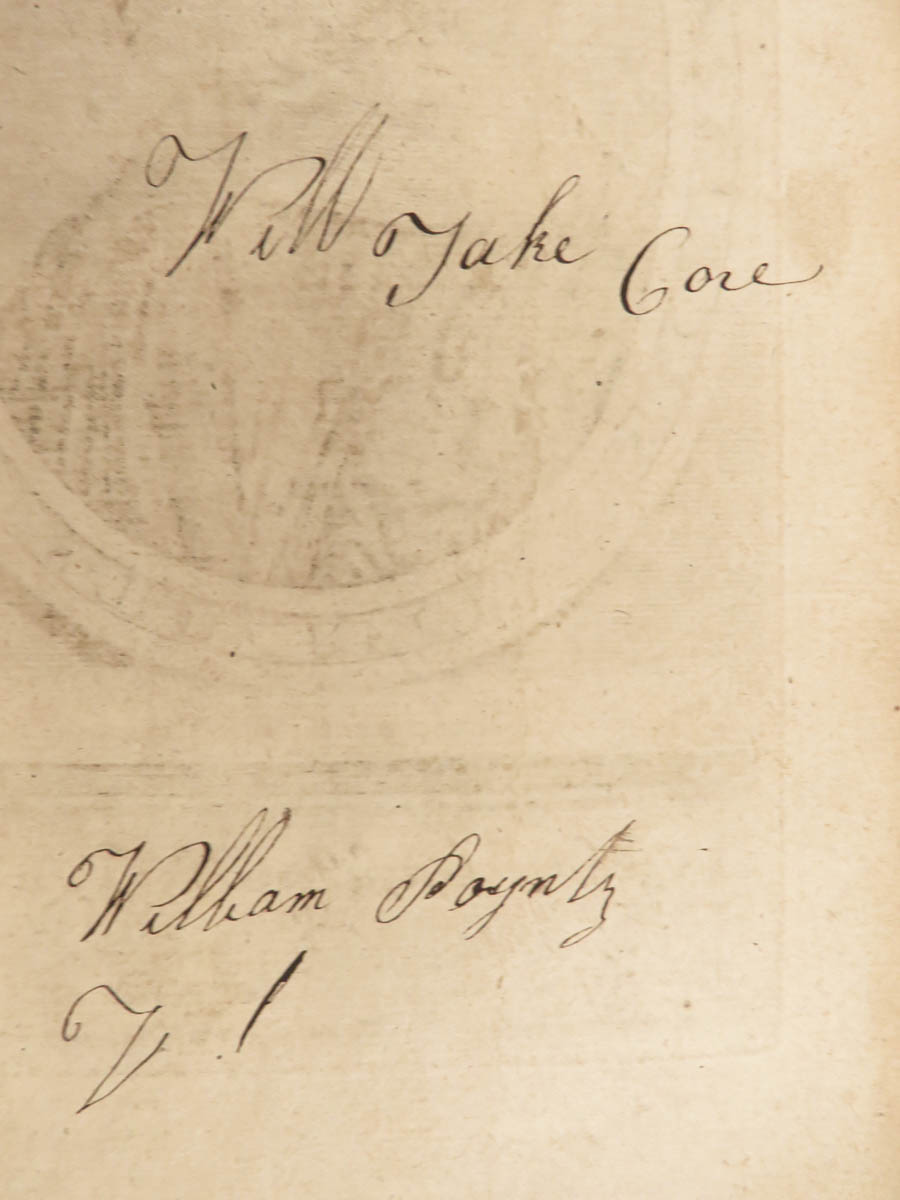 Will Take Core
William Poyntz
V